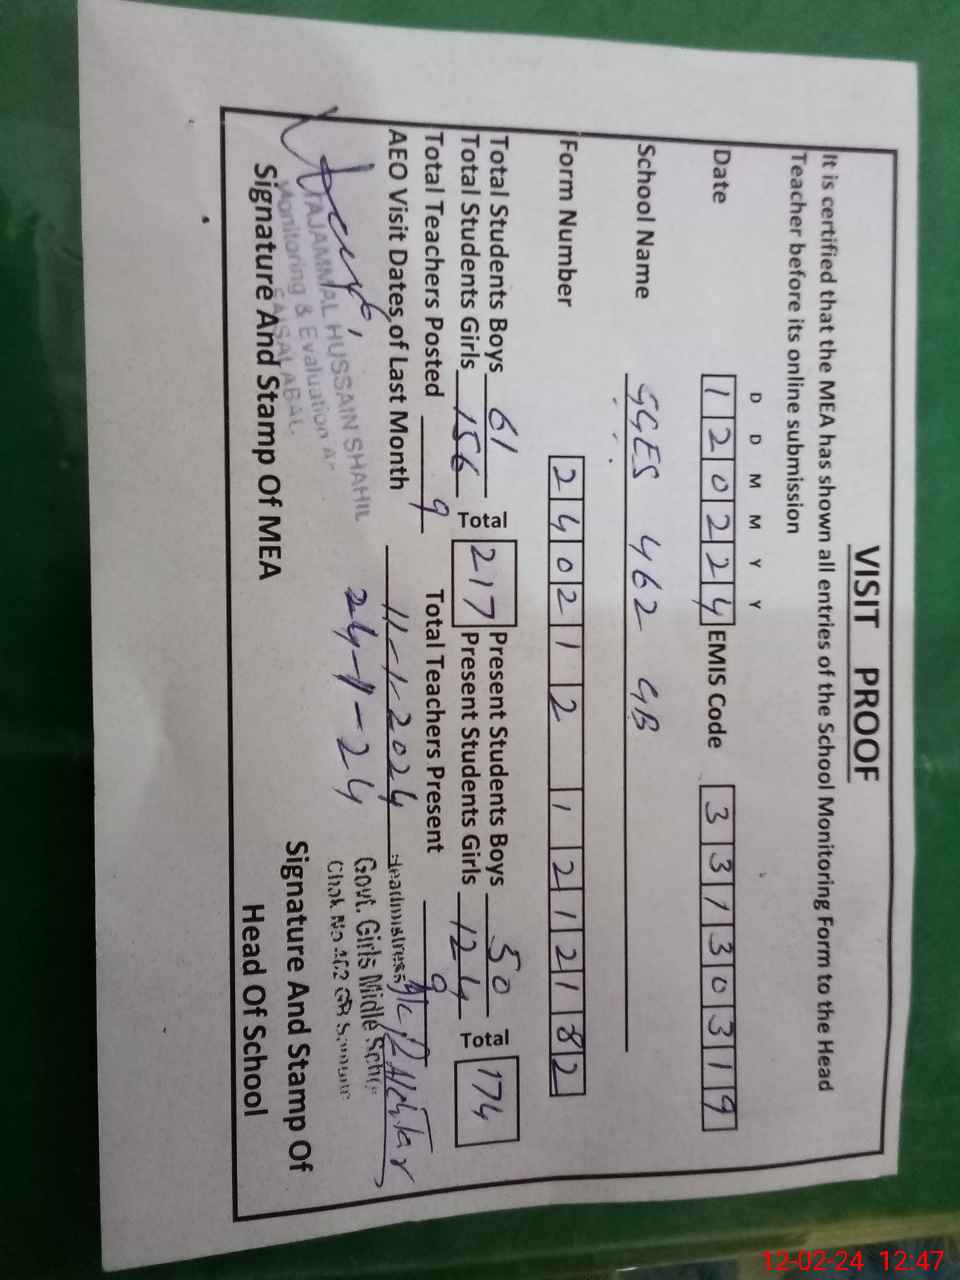 VISIT PROOF
It is certified that the MEA has shown all entries of the School Monitoring Form to the Head
Teacher before its online submission
D D M M Y Y
Date 1 2 0 2 2 4 EMIS Code 3 3 1 3 0 3 1 9
School Name GGES 462 GB
Form Number 2 4 0 2 1 2 1 2 1 2 1 8 2
Total Students Boys 61 Present Students Boys 50
Total 217 Total 174
Total Students Girls 156 Present Students Girls 124
Total Teachers Posted 9 Total Teachers Present 9
AEO Visit Dates of Last Month 11-1-2024
24-1-24
Headmistress
Govt. Girls Midle
Chak No 462 GB
TAJAMMAL HUSSAIN SHAHIL
Monitoring & Evaluation A-
FAISALABAD.
Signature And Stamp Of MEA
Signature And Stamp Of
Head Of School
12-02-24 12:47